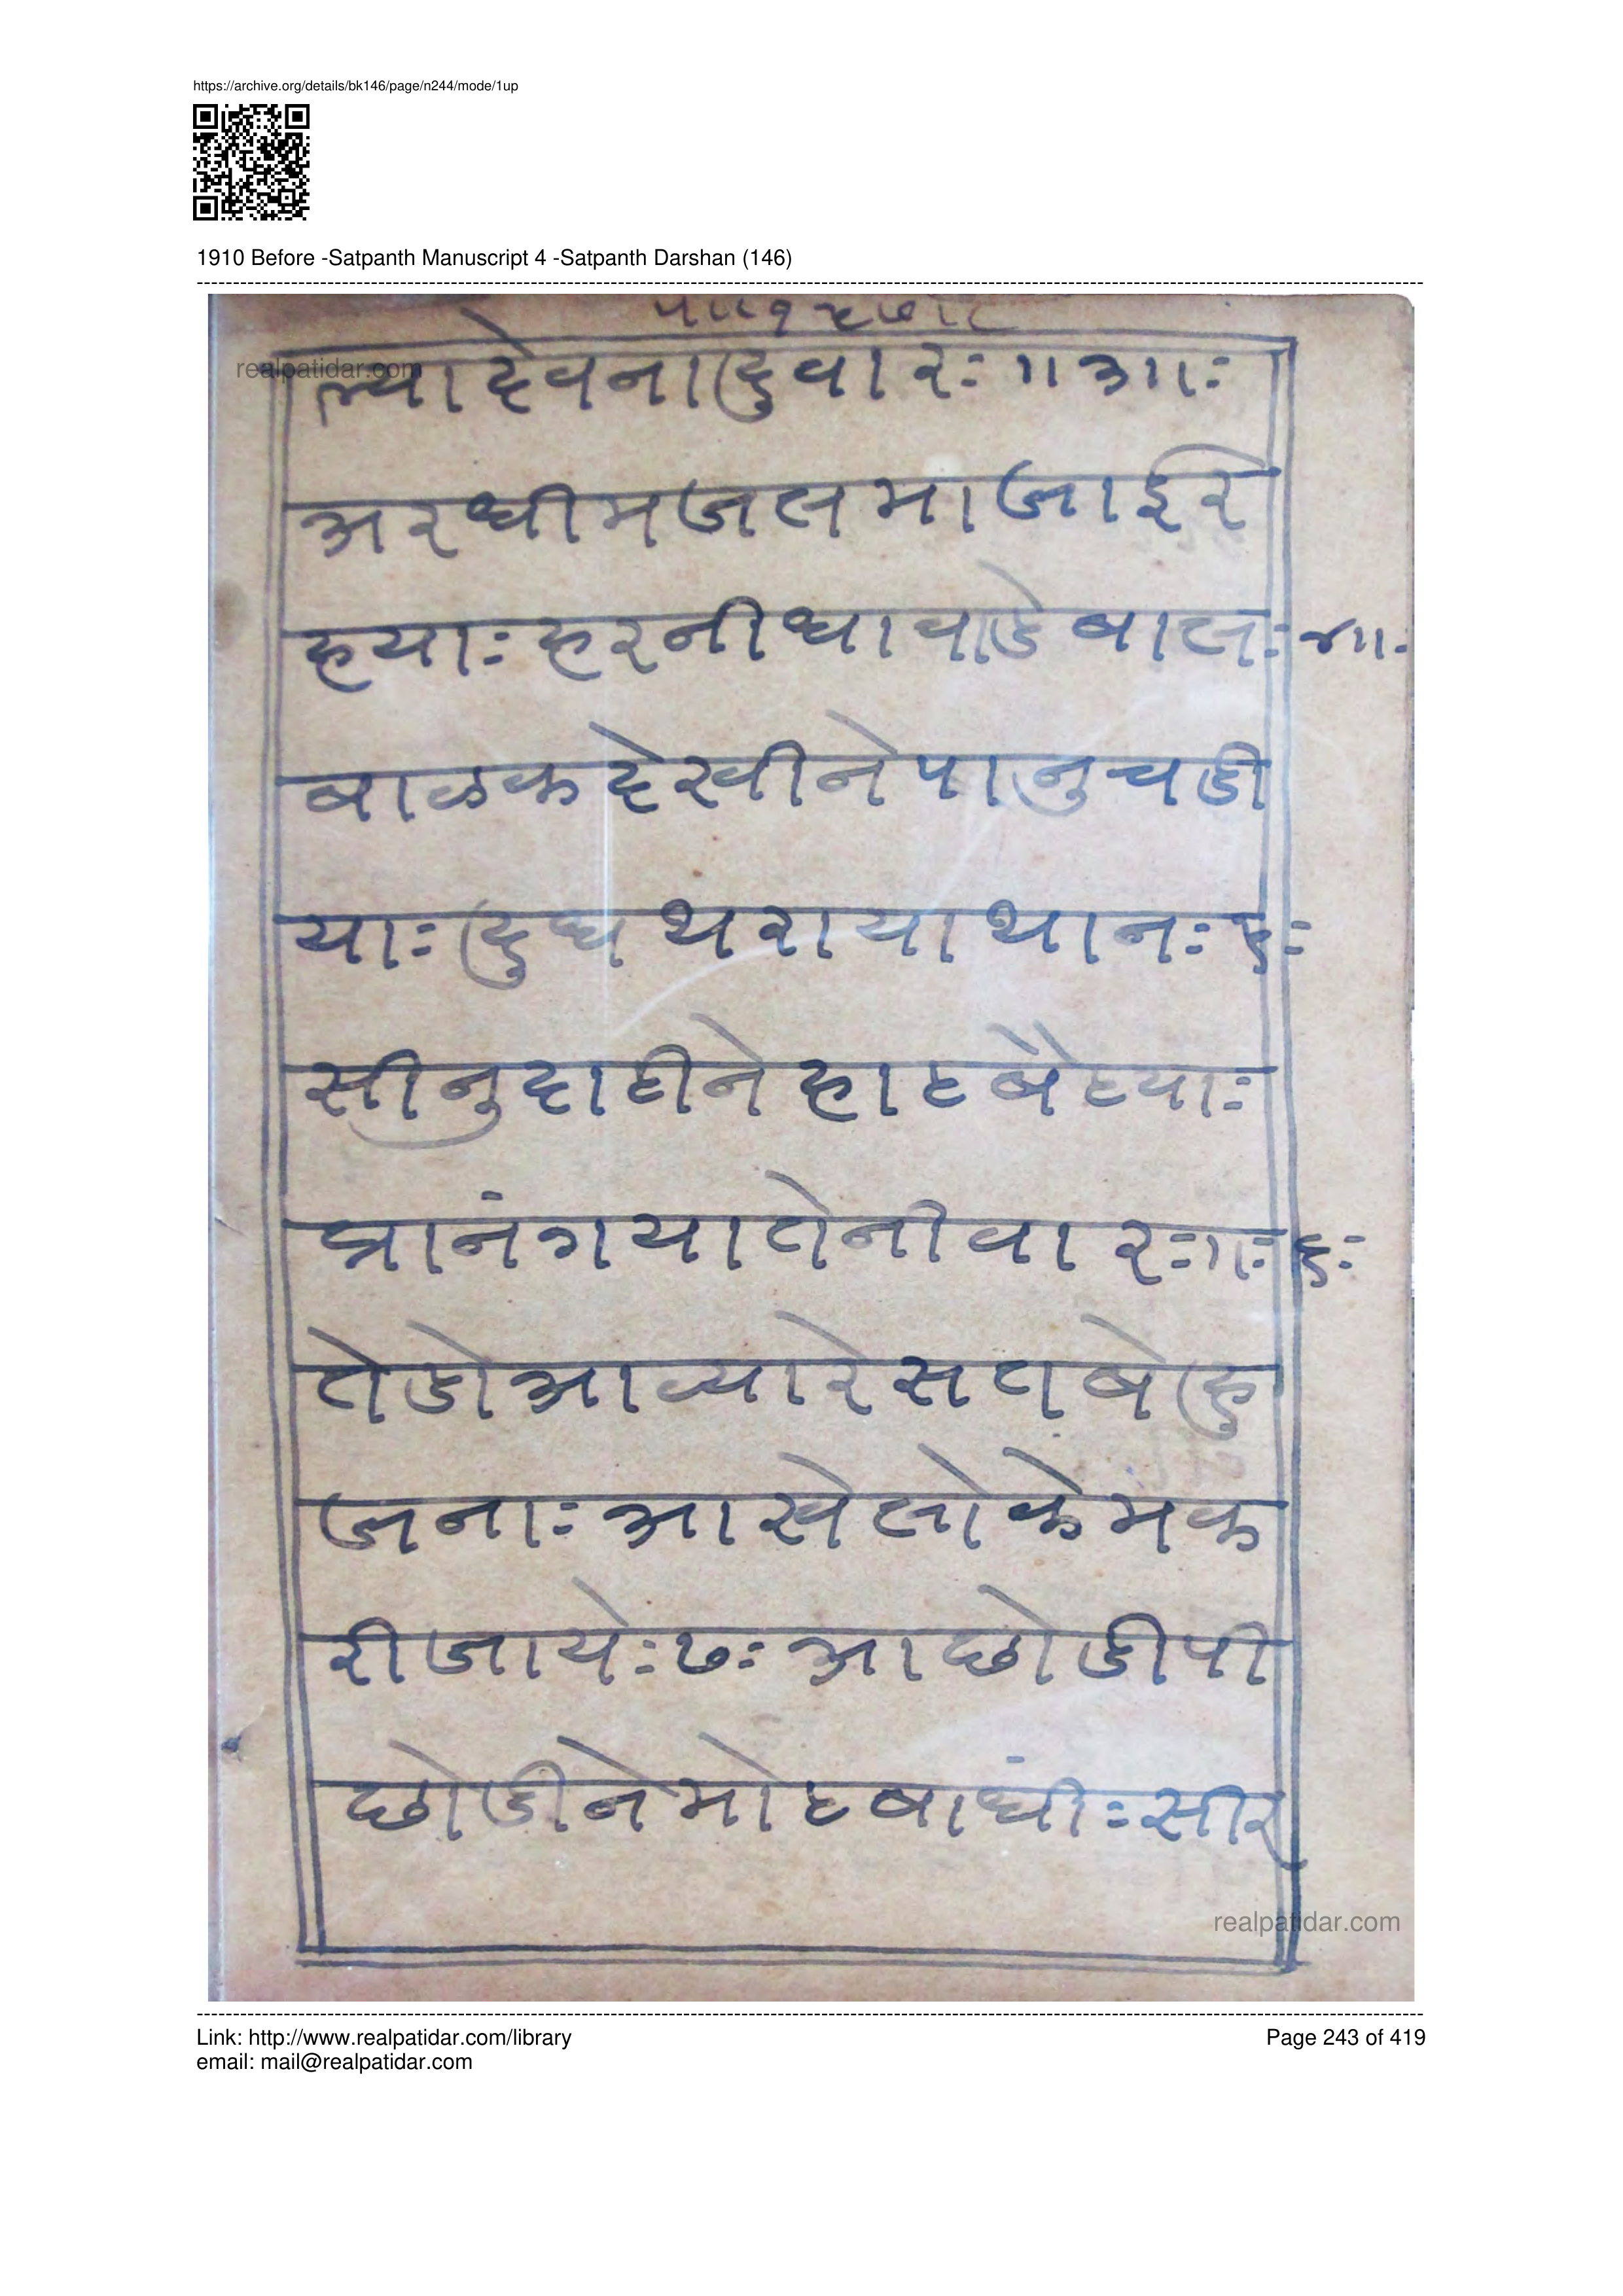 https://archive.org/details/bk146/page/n244/mode/1up
1910 Before -Satpanth Manuscript 4 -Satpanth Darshan (146)
realpatidar.com
ल्या देवना दुवा रः ॥३॥ः
अरधीमजलमा जाइरे
हयाः हरनी धावाडे बालः ४॥ः
बाळक देखीने पानुचडी
याः दुध थराया थानः
सीनु दाटीने हाट बैठयाः
प्रानं गया तेनी वा रः॥ः ६ः
तेडो आव्यारे सत बेहु
जनाः आखे लोके मक
री जायेः ७ः आ छोडी पी
छोडीने मोट बांधीः सीर
realpatidar.com
Link: http://www.realpatidar.com/library
Page 243 of 419
email: mail@realpatidar.com